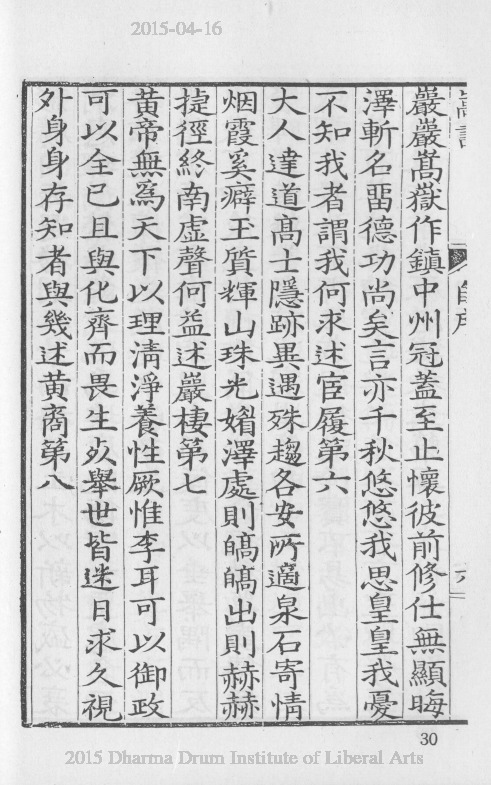 2015-04-16
嵩書
自序
巖巖嵩嶽作鎮中州冠蓋至止懷彼前修仕無顯晦
澤斬名畱德功尚矣言亦千秋悠悠我思皇皇我憂
不知我者謂我何求述宦履第六
大人達道高士隱跡異遇殊趨各安所適泉石寄情
烟霞奚癖玉質輝山珠光媚澤處則皜皜出則赫赫
捷徑終南虛聲何益述巖棲第七
黃帝無為天下以理清淨養性厥惟李耳可以御政
可以全已且與化齊而畏生死舉世皆迷日求久視
外身身存知者與幾述黃裔第八
30
2015 Dharma Drum Institute of Liberal Arts